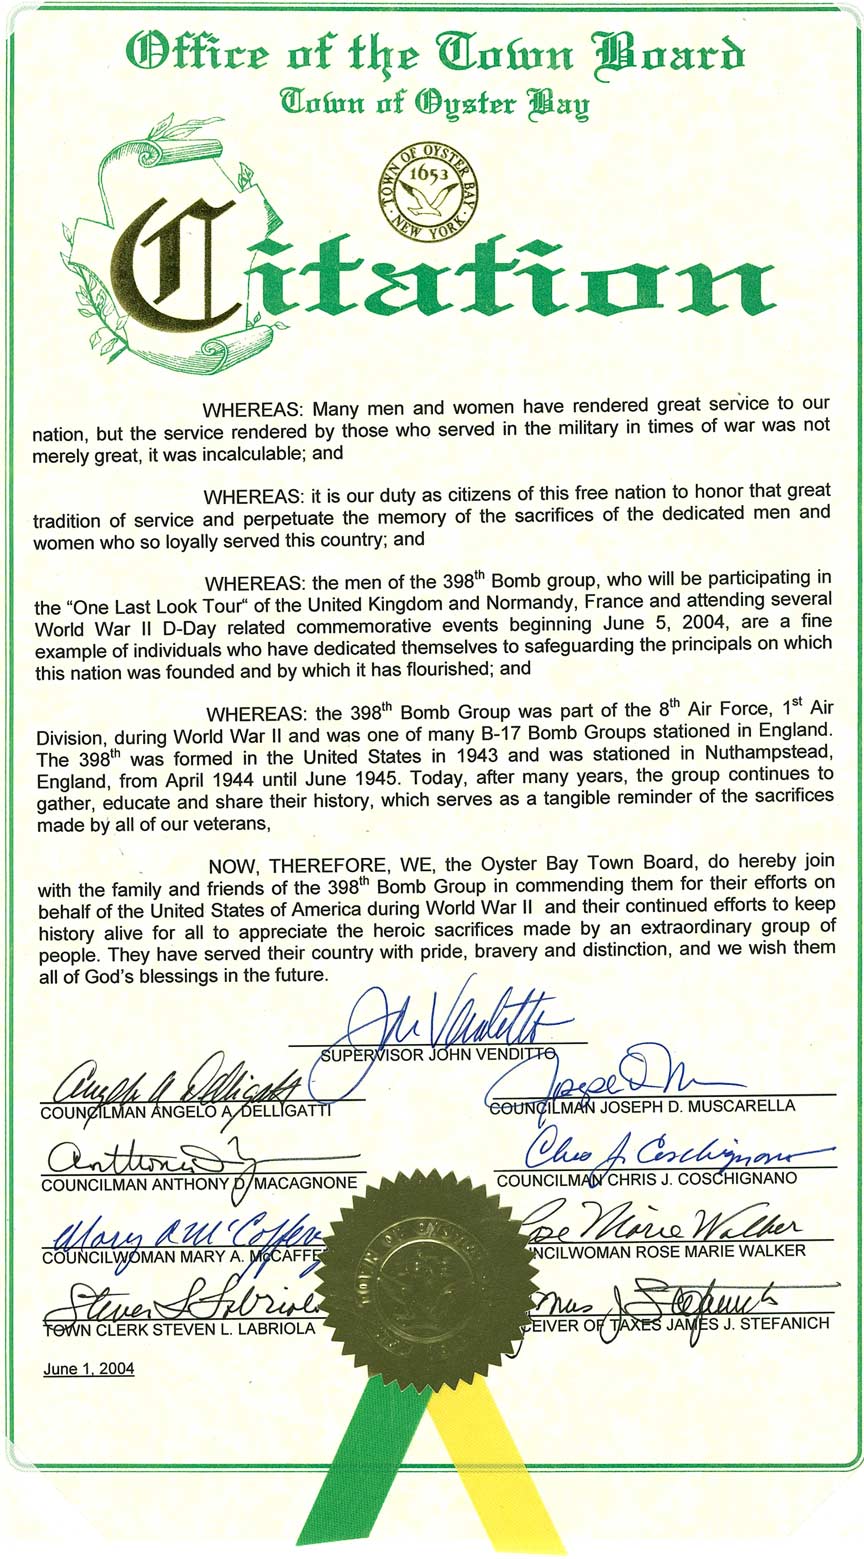 Office of the Town Board
Town of Oyster Bay
TOWN OF OYSTER BAY
1653
NEW YORK
Citation
WHEREAS: Many men and women have rendered great service to our
nation, but the service rendered by those who served in the military in times of war was not
merely great, it was incalculable; and
WHEREAS: it is our duty as citizens of this free nation to honor that great
tradition of service and perpetuate the memory of the sacrifices of the dedicated men and
women who so loyally served this country; and
WHEREAS: the men of the 398th Bomb group, who will be participating in
the “One Last Look Tour“ of the United Kingdom and Normandy, France and attending several
World War II D-Day related commemorative events beginning June 5, 2004, are a fine
example of individuals who have dedicated themselves to safeguarding the principals on which
this nation was founded and by which it has flourished; and
WHEREAS: the 398th Bomb Group was part of the 8th Air Force, 1st Air
Division, during World War II and was one of many B-17 Bomb Groups stationed in England.
The 398th was formed in the United States in 1943 and was stationed in Nuthampstead,
England, from April 1944 until June 1945. Today, after many years, the group continues to
gather, educate and share their history, which serves as a tangible reminder of the sacrifices
made by all of our veterans,
NOW, THEREFORE, WE, the Oyster Bay Town Board, do hereby join
with the family and friends of the 398th Bomb Group in commending them for their efforts on
behalf of the United States of America during World War II and their continued efforts to keep
history alive for all to appreciate the heroic sacrifices made by an extraordinary group of
people. They have served their country with pride, bravery and distinction, and we wish them
all of God's blessings in the future.
John Venditto
SUPERVISOR JOHN VENDITTO
Angelo A. Delligatti
COUNCILMAN ANGELO A. DELLIGATTI
Joseph D. M
COUNCILMAN JOSEPH D. MUSCARELLA
Anthony D.
COUNCILMAN ANTHONY D. MACAGNONE
Chris J. Coschignano
COUNCILMAN CHRIS J. COSCHIGNANO
Mary A. McCaffer
COUNCILWOMAN MARY A. McCAFFE
Rose Marie Walker
NCILWOMAN ROSE MARIE WALKER
Steven L. Labriola
TOWN CLERK STEVEN L. LABRIOLA
J. Stefanich
CEIVER OF TAXES JAMES J. STEFANICH
TOWN OF OYSTER
1653
June 1, 2004